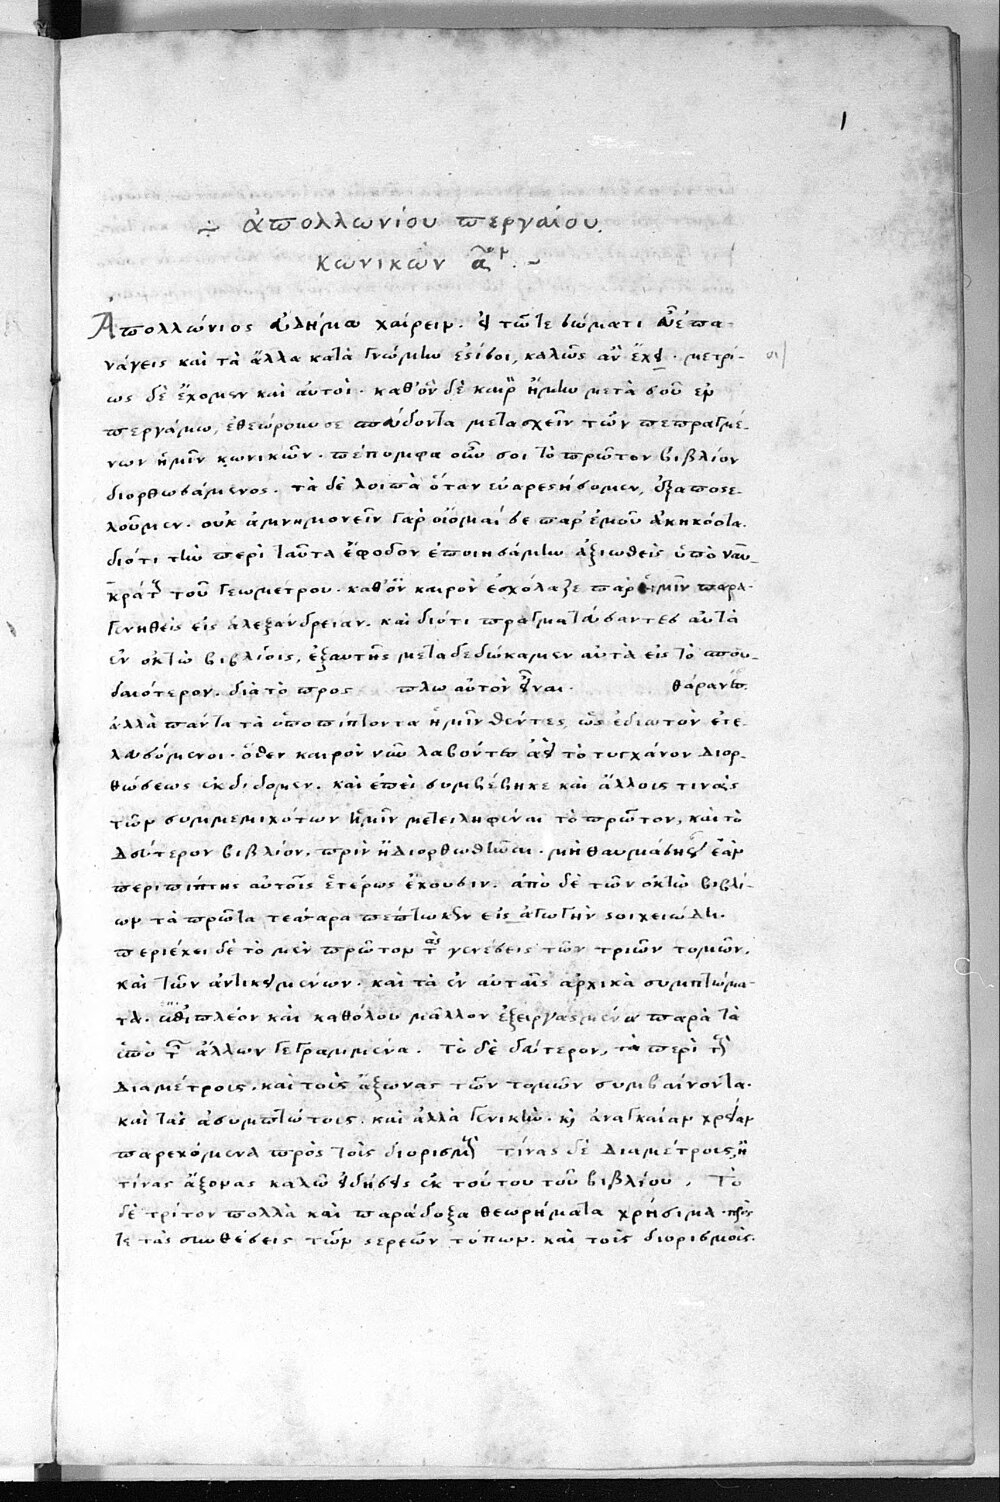 1
ἀπολλωνίου περγαίου.
κωνικῶν αον.
Ἀπολλώνιος εὐδήμω χαίρειν. εἰ τῶ τε σώματι εὖ ἐπα-
νάγεις καὶ τὰ ἄλλα κατὰ γνώμην ἐστί σοι, καλῶς ἂν ἔχει. μετρί-
ως δὲ ἔχομεν καὶ αὐτοί. καθ' ὃν δὲ καιρὸν ἤμην μετὰ σοῦ ἐν
περγάμω, ἐθεώρουν σε σπεύδοντα μετασχεῖν τῶν πεπραγμέ-
νων ἡμῖν κωνικῶν. πέπομφα οὖν σοι τὸ πρῶτον βιβλίον
διορθωσάμενος. τὰ δὲ λοιπὰ ὅταν εὐαρεστήσωμεν, ἐξαποστε-
λοῦμεν. οὐκ ἀμνημονεῖν γὰρ οἴομαί σε παρ' ἐμοῦ ἀκηκόοτα.
διότι τὴν περὶ ταῦτα ἔφοδον ἐποιησάμην ἀξιωθεὶς ὑπὸ ναυ-
κράτους τοῦ γεωμέτρου. καθ' ὃν καιρὸν ἐσχόλαζε παρ' ἡμῖν παρα-
γενηθεὶς εἰς ἀλεξάνδρειαν. καὶ διότι πραγματεύσαντες αὐτὰ
ἐν ὀκτὼ βιβλίοις, ἐξαυτῆς μεταδεδώκαμεν αὐτὰ εἰς τὸ σπου-
δαιότερον. διὰ τὸ προς πλω αὐτὸν εἶναι. θάραντ
ἀλλὰ πάντα τὰ ὑποπίπτοντα ἡμῖν θέντες, ὡς ἐδιωτὸν ἐπε-
λευσόμενοι. ὅθεν καιρὸν νῦν λαβόντες ἀεὶ τὸ τυγχάνον διορ-
θώσεως ἐκδίδομεν. καὶ ἐπεὶ συμβέβηκε καὶ ἄλλους τινὰς
τῶν συμμεμιχότων ἡμῖν μετειληφέναι τὸ πρῶτον, καὶ τὸ
δεύτερον βιβλίον. πρὶν ἢ διορθωθῆναι. μὴ θαυμάσης ἐὰν
περιπίπτης αὐτοῖς ἑτέρως ἔχουσιν. ἀπὸ δὲ τῶν ὀκτὼ βιβλί-
ων τὰ πρῶτα τέσσαρα πέπτωκεν εἰς ἀγωγὴν στοιχειώδη.
περιέχει δὲ τὸ μὲν πρῶτον τὰς γενέσεις τῶν τριῶν τομῶν.
καὶ τῶν ἀντικειμένων. καὶ τὰ ἐν αὐταῖς ἀρχικὰ συμπτώμα-
τα. ἐπὶ πλέον καὶ καθόλου μᾶλλον ἐξειργασμένα παρὰ τὰ
ὑπὸ τῶν ἄλλων γεγραμμένα. Τὸ δὲ δεύτερον, τὰ περὶ τὰς
διαμέτρους. καὶ τοὺς ἄξωνας τῶν τομῶν συμβαίνοντα.
καὶ τὰς ἀσυμπτώτους. καὶ ἀλλὰ γενικὴν. καὶ ἀναγκαίαν χρείαν
παρεχόμενα πρὸς τοὺς διορισμούς τίνας δὲ διαμέτρους, ἢ
τίνας ἄξονας καλῶ εἰδήσεις ἐκ τούτου τοῦ βιβλίου. Τὸ
δὲ τρίτον πολλὰ καὶ παράδοξα θεωρήματα χρήσιμα πρός
τε τὰς συνθέσεις τῶν στερεῶν τόπων. καὶ τοὺς διορισμούς.